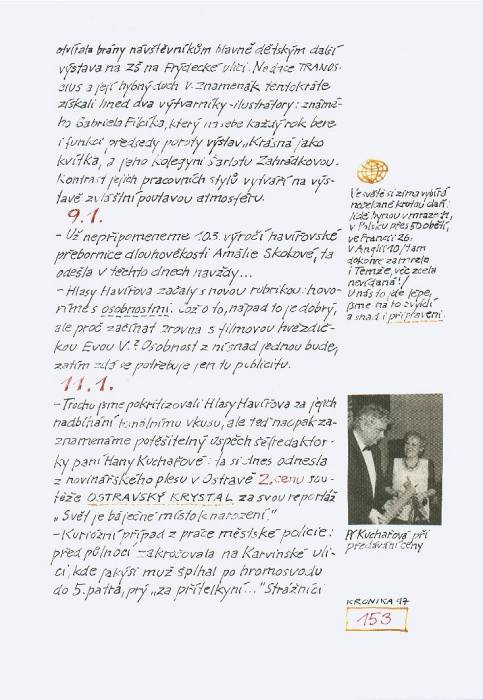 otvírala brány návštěvníkům hlavně dětským další
výstava na ZŠ na Frýdecké ulici. Nadace TRANOS-
cius a její hybný duch V. Znamenák tentokráte
získali hned dva výtvarníky-ilustrátory: známé-
ho Gabriela Filcíka, který na sebe každý rok bere
i funkci předsedy poroty výstav „Krásná jako
kvítka, a jeho kolegyni Šarlotu Zahrádkovou.
Kontrast jejich pracovních stylů vytváří na výs-
tavě zvláštní poutavou atmosféru.
9.1.
- Už nepřipomeneme 103. výročí havířovské
přebornice dlouhověkosti Amálie Skokové, ta
odešla v těchto dnech navždy...
- Hlasy Havířova začaly s novou rubrikou: hovo-
říme s osobnostmi. Což o to, nápad to je dobrý,
ale proč začínat zrovna s filmovou hvězdič-
kou Evou V.? Osobnost z ní snad jednou bude,
zatím zdá se potřebuje jen tu publicitu.
11.1.
- Trochu jsme pokritizovali Hlasy Havířova za jejich
nadbíhání banálnímu vkusu, ale teď naopak za-
znamenáme potěšitelný úspěch šéfredaktor-
ky paní Hany Kuchařové: ta si dnes odnesla
z novinářského plesu v Ostravě 2. cenu sou-
těže OSTRAVSKÝ KRYSTAL za svou reportáž
„Svět je báječné místo k narození."
- Kuriózní případ z práce městské policie:
před půlnocí zakročovala na Karvinské uli-
ci, kde jakýsi muž šplhal po hromosvodu
do 5. patra, prý „za přítelkyní..." Strážníci
Ve světě si zima vybírá
nečekaně krutou daň:
lidé hynou v mrazech,
v Polsku přes 50 obětí,
ve Francii 26,
v Anglii 10, tam
dokonce zamrzla
i Temže, věc zcela
nevídaná!
U nás to jde lépe,
jsme na to zvyklí
a snad i připraveni.
Pí Kuchařová při
předávání ceny
KRONIKA 97
153